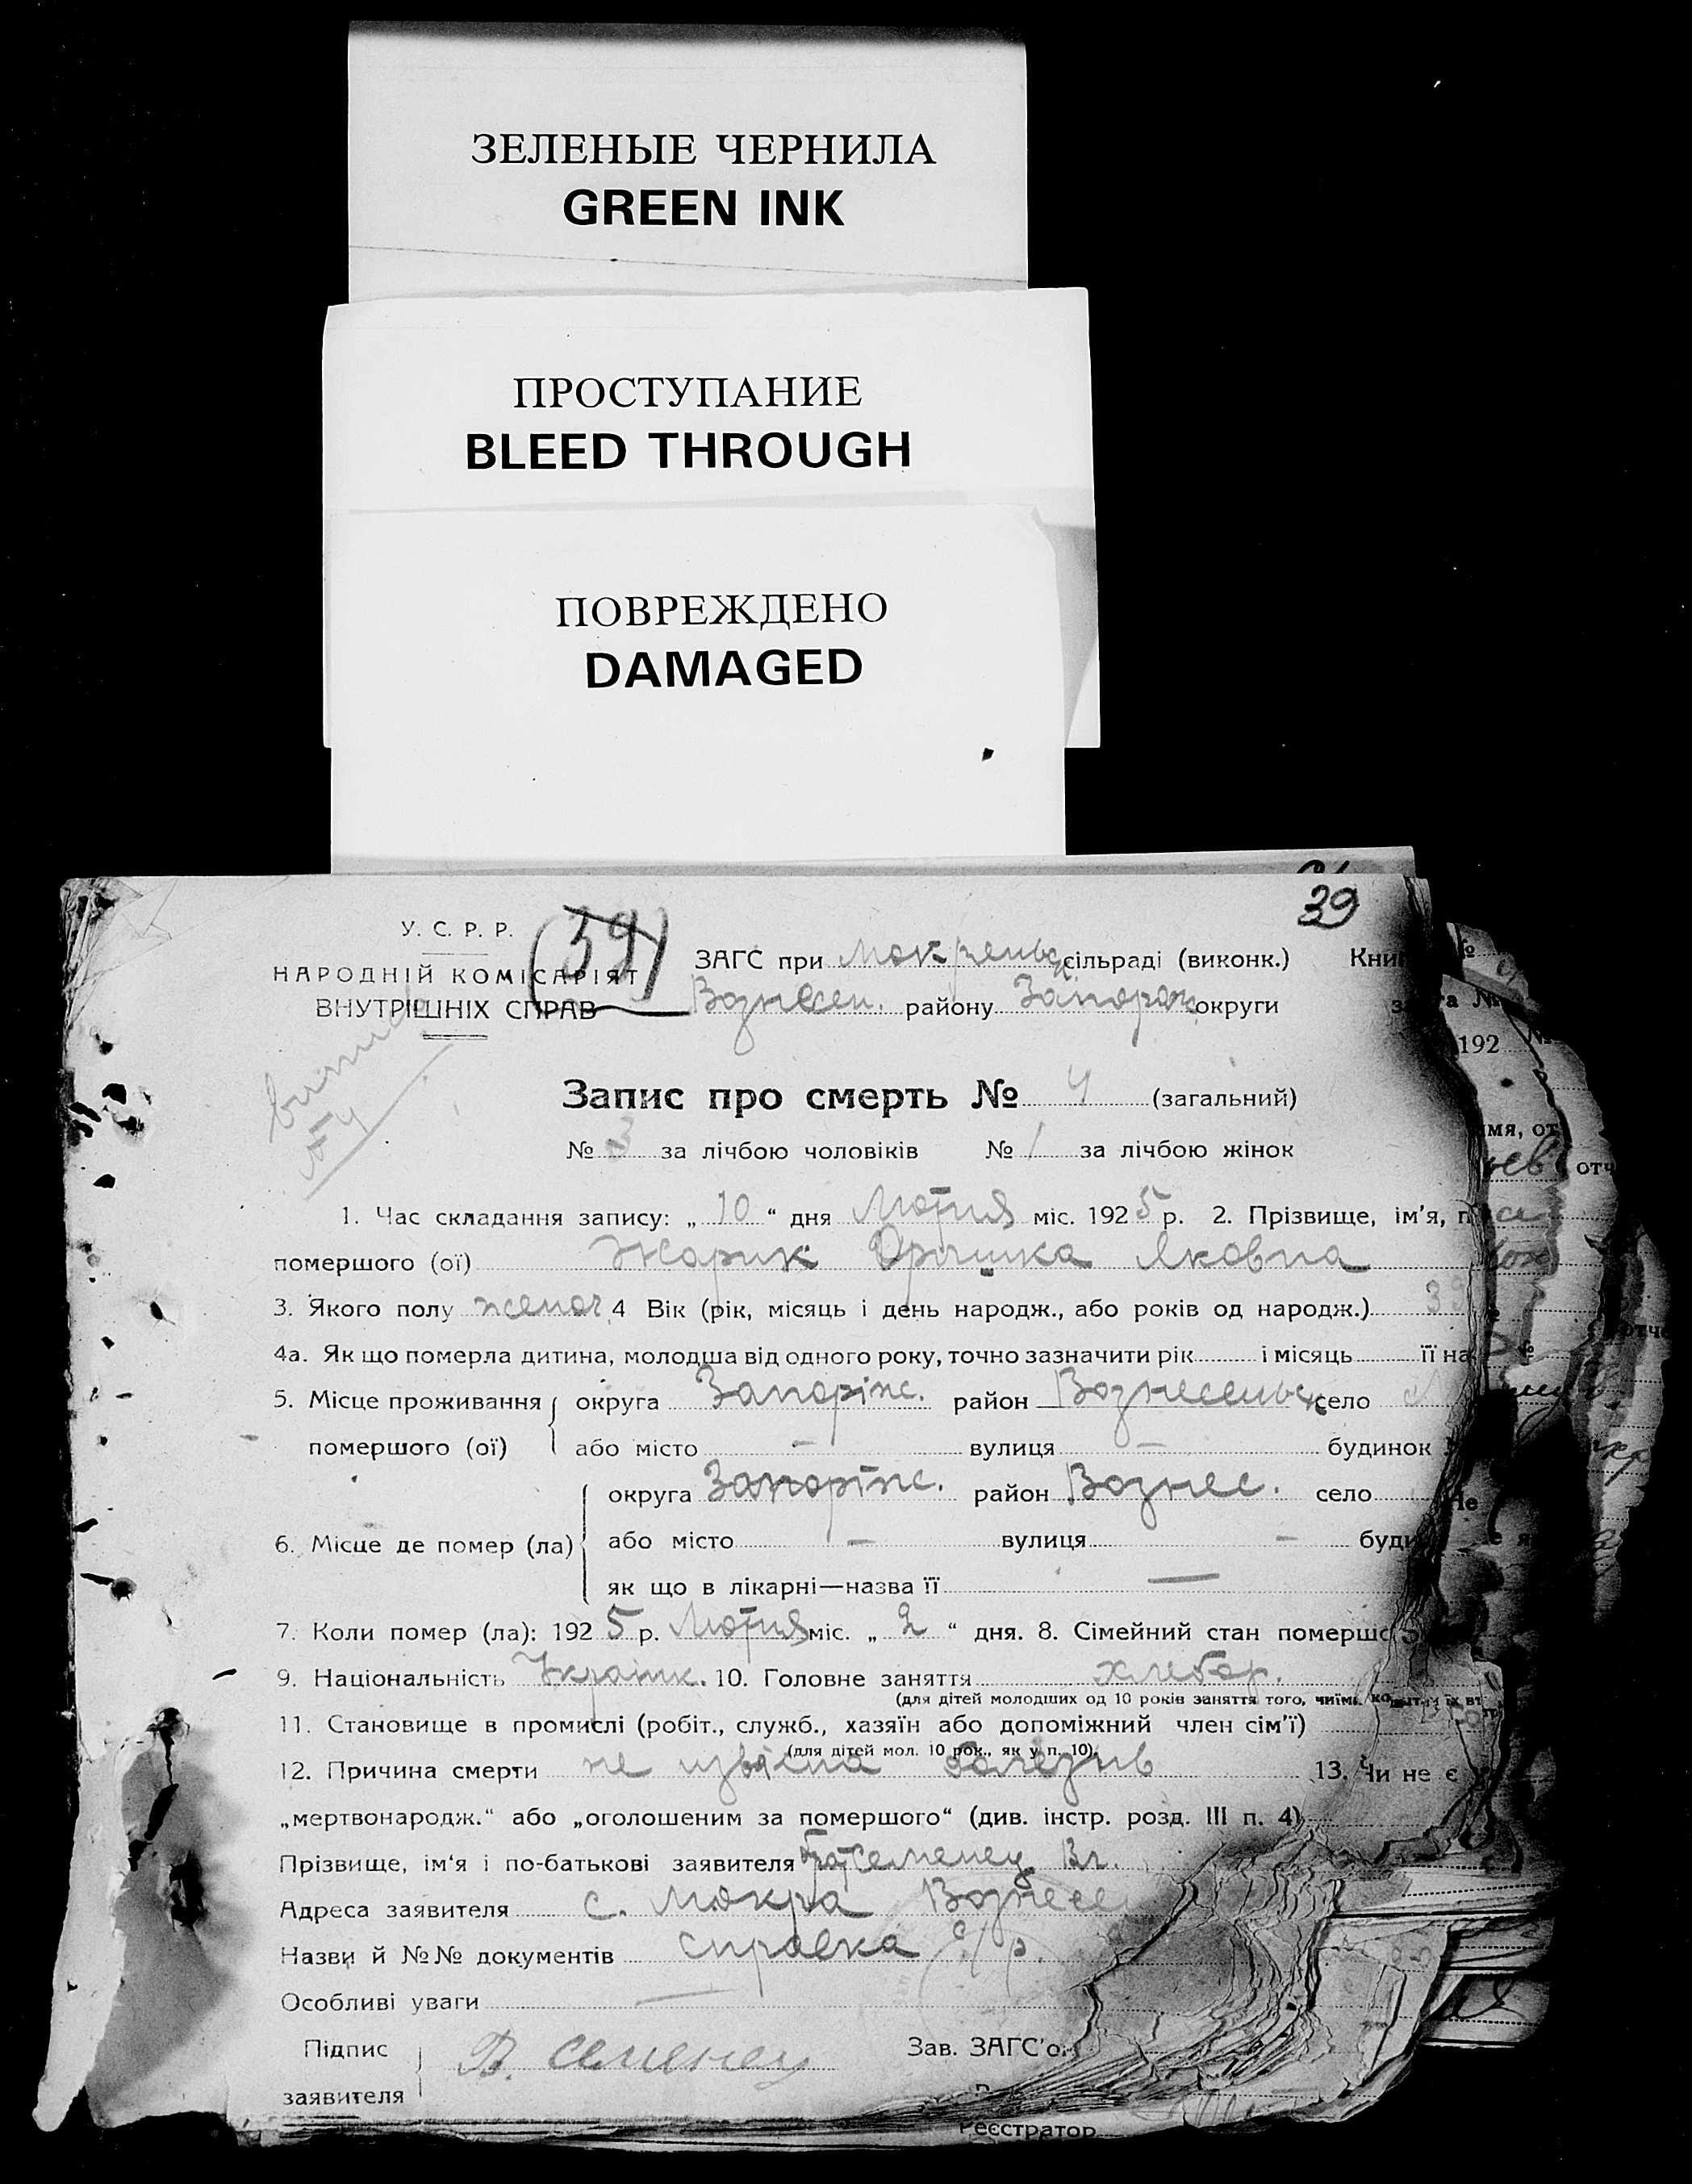 ЗЕЛЕНЫЕ ЧЕРНИЛА
GREEN INK
ПРОСТУПАНИЕ
BLEED THROUGH
ПОВРЕЖДЕНО
DAMAGED
39
У. С. Р. Р.
(39)
НАРОДНІЙ КОМІСАРІЯТ
ВНУТРІШНІХ СПРАВ
ЗАГС при сільраді (виконк.)
Вознесен. району Запорож округи
192
Запис про смерть № 4 (загальний)
№ 3 за лічбою чоловіків № 1 за лічбою жінок
1. Час складання запису: „ 10 “ дня Лютня міс. 1925 р. 2. Прізвище, ім'я,
помершого (ої) Жарик Оришка Яковна
3. Якого полу женоч 4 Вік (рік, місяць і день народж., або років од народж.) 39
4а. Як що померла дитина, молодша від одного року, точно зазначити рік і місяць її
5. Місце проживання округа Запоріж. район Вознесенськ село
помершого (ої) або місто — вулиця — будинок
округа Запоріж. район Вознес. село
6. Місце де помер (ла) або місто — вулиця —
як що в лікарні—назва її —
7. Коли помер (ла): 1925 р. Лютня міс. „ 2 “ дня. 8. Сімейний стан
9. Національність Українк. 10. Головне заняття хлебор.
(для дітей молодших од 10 років заняття того,
11. Становище в промислі (робіт., служб., хазяїн або допоміжний член сім'ї)
(для дітей мол. 10 рок., як у п. 10).
12. Причина смерти не извісна болезнь 13. Чи не є
„мертвонародж.“ або „оголошеним за помершого“ (див. інстр. розд. III п. 4)
Прізвище, ім'я і по-батькові заявителя брат Семенец Вл.
Адреса заявителя с. Мокра Вознесе
Назви й №№ документів справка с/р.
Особливі уваги —
Підпис
заявителя
В. Семенец
Зав. ЗАГС'о
Реєстратор